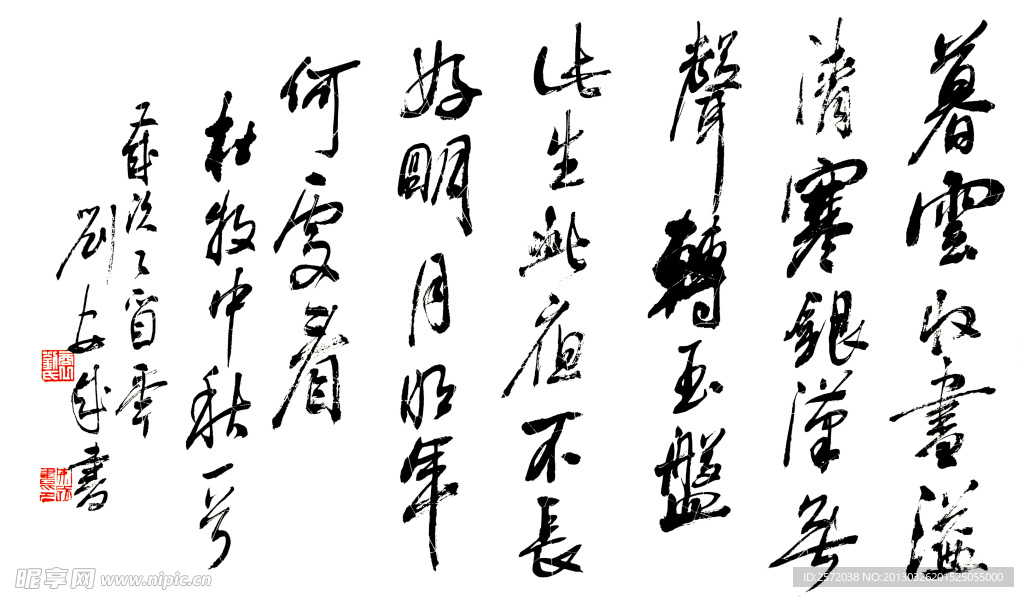 暮雲收盡溢
清寒銀漢無
聲轉玉盤
此生此夜不長
好明月明年
何處看
杜牧中秋一
歲次乙酉
劉安成書
昵享网 www.nipic.cn
ID:2572038 NO:20130326201525055000